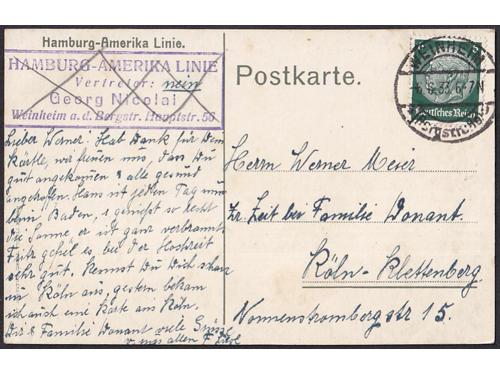 Hamburg-Amerika Linie.
HAMBURG-AMERIKA LINIE
Vertreter: nein
Georg Nicolai
Weinheim a.d. Bergstr. Hauptstr. 56
Lieber Werner! Hab Dank für Dein
Kärtle, wir freuen uns, dass Du
gut angekommen & alle gesund
angetroffen. Hans ist jeden Tag nun
beim Baden, & genießt so recht
die Sonne er ist ganz verbrannt
Fritz gefiel es, bei der Hochzeit
sehr gut. Kennst Du Dich schon
in Köln aus, gestern bekam
ich auch eine Karte aus Köln.
Dir & Familie Donant viele Grüsse
v. uns allen
Postkarte.
WEINHEIM
6-7N
(Bergstrasse)
Deutsches Reich
Herrn Werner Meier
Zr. Zeit bei Familie Donant.
Köln-Klettenberg
Nonnenstrombergstr 15.